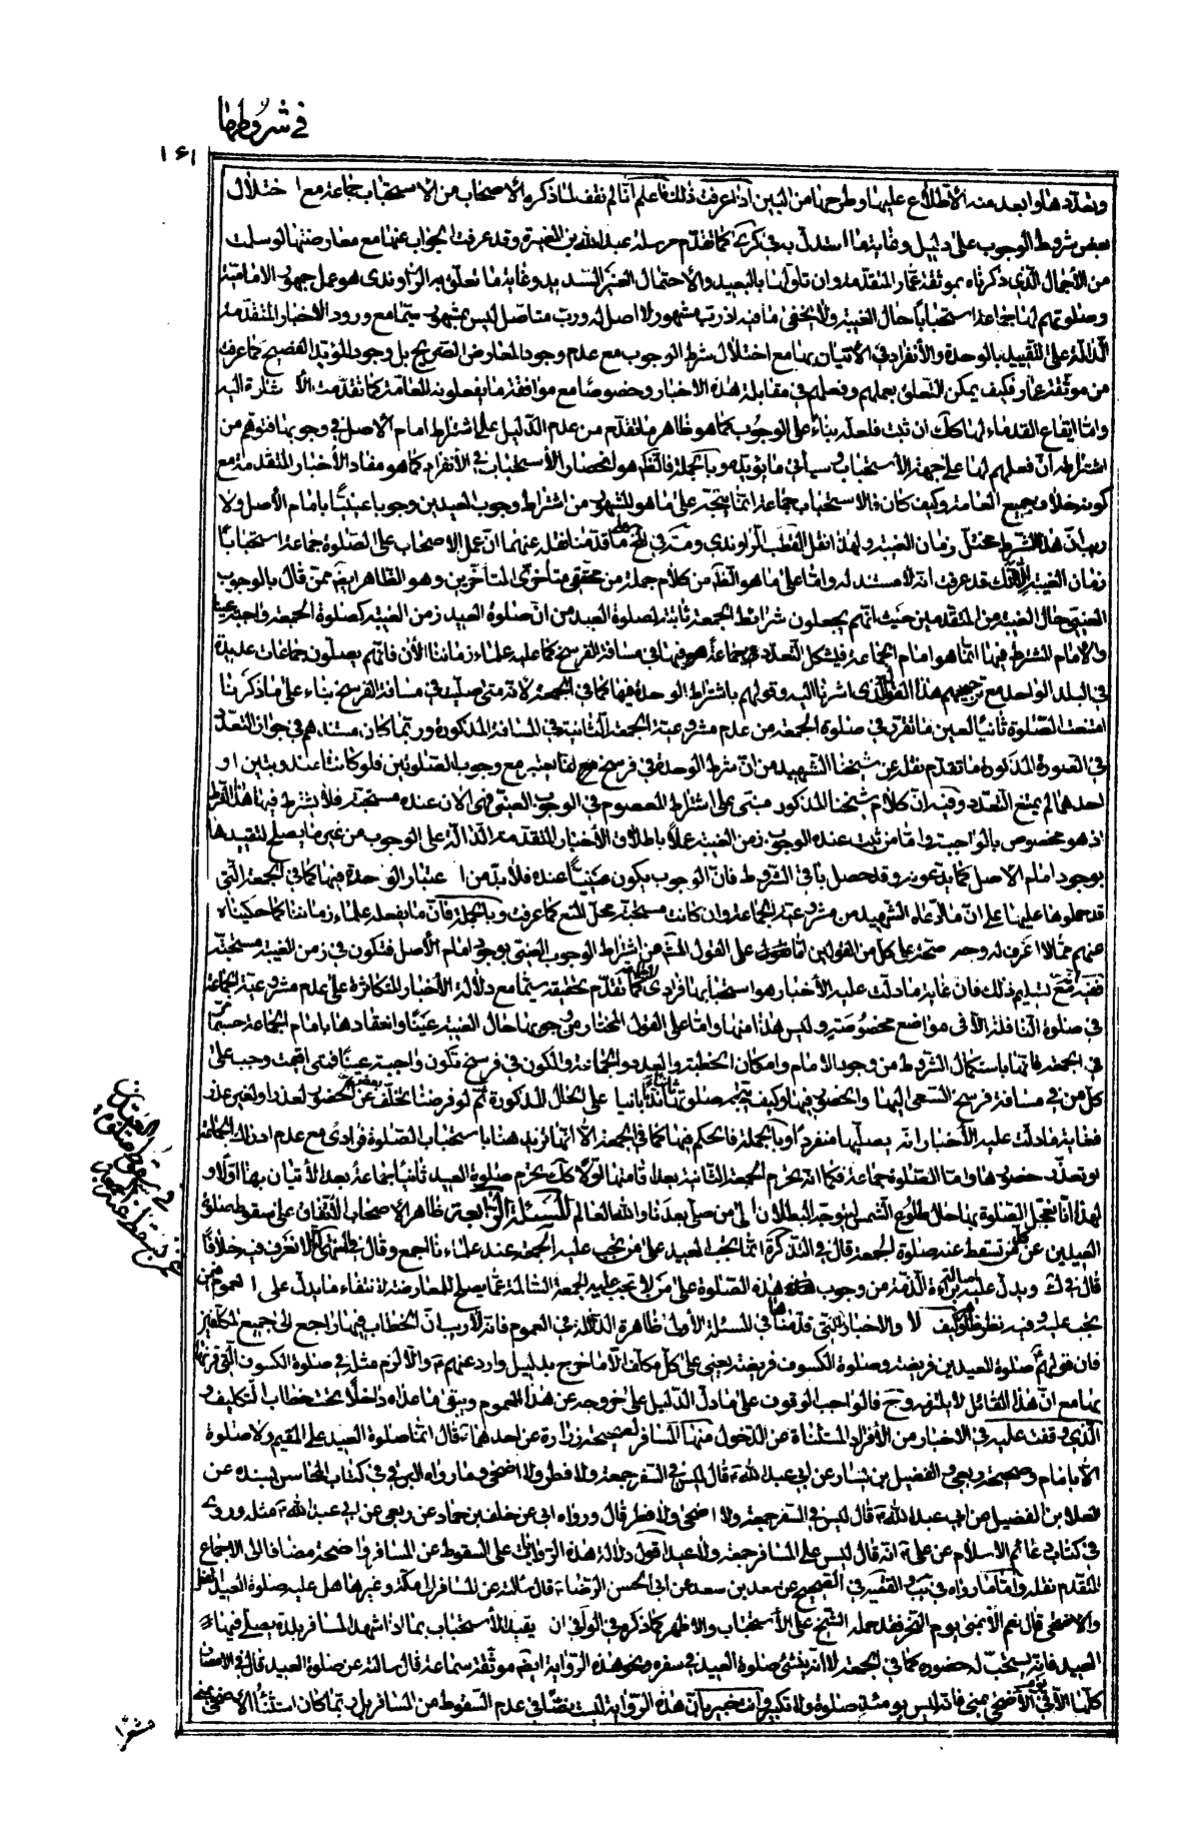 في شروطها
١٤١
وبعدها وابعد منه الاطلاع عليها وطرحها من البين اذا عرفت ذلك فاعلم انا لم نقف لما ذكره الاصحاب من الاستحباب جماعة مع اختلال
بعض شروط الوجوب على دليل وغاية ما استدل به في كرى كما تقدم مرسلة عبد الله بن المغيرة وقد عرفت الجواب عنها مع معارضتها لو سلمت
من الأجمال الذي ذكرناه بموثقة عمار المتقدمة وان تاولها بالبعيد والاحتمال الغير السديد وغاية ما تعلق به الراوندى هو عمل جمهور الامامية
وصلوتهم لها جماعة استحباباً حال الغيبة ولا يخفى ما فيه اذ رب مشهور لا اصل له ورب متاصل ليس بمشهور سيما مع ورود الاخبار المتقدمة
الدالة على التقييد بالوحدة والأنفراد في الأتيان بها مع اختلال شرط الوجوب مع عدم وجود المعارض الصريح بل وجود المؤيد الفصيح كما عرفت
من موثقة عمار فكيف يمكن التعلق بعملهم وفعلهم في مقابلة هذه الاخبار وخصوصا مع موافقة ما يفعلونه للعامة كما تقدمت الاشارة اليه
واما ايقاع القدماء لها كك ان ثبت فلعله بناء على الوجوب كما هو ظاهر ما تقدم من عدم الدليل على اشتراط امام الأصل في وجوبها فتوهم من
اشتراطه ان فعلهم لها على جهة الأستحباب وسيأتي ما يؤيده وبالجملة فالظم هو انحصار الأستحباب في الأنفراد كما هو مفاد الأخبار المتقدمة مع
كونه خلاف جميع العامة وكيف كان فالاستحباب جماعة انما يتجه على ما هو المشهور من اشتراط وجوب العيدين وجوبا عينيا بامام الأصل ولا
ريب ان هذا الشرط مختل زمان الغيبة ولهذا نقل القطب الراوندي ومثله في كما قدمنا نقله عنهما ان عمل الاصحاب على الصلوة جماعة استحبابا
زمان الغيبة لكنك قد عرفت انه لا مستند له واما على ما هو الظم من كلام جملة من محققى متأخرى المتأخرين وهو الظاهر ايضا ممن قال بالوجوب
العينى حال الغيبة من المتقدمين حيث انهم يجعلون شرائط الجمعة ثابتة لصلوة العيد من ان صلوة العيد زمن الغيبة كصلوة الجمعة واجبة عينا
والامام المشترط فيها انما هو امام الجماعة فيشكل التعدد جماعة فيها في مسافة الفرسخ كما عليه علماء زماننا الأن فانهم يصلون جماعات عديدة
في البلد الواحد مع ترجيحهم هذا القول الذى اشرنا اليه وقولهم باشتراط الوحدة فيها كما في الجمعة لانه متى صليت في مسافة الفرسخ بناء على ما ذكرنا
امتنعت الصلوة ثانيا لعين ما تقرر في صلوة الجمعة من عدم مشروعية الجمعة الثانية في المسافة المذكورة وربما كان مستندهم في جواز التعدد
في الصورة المذكورة ما تقدم نقله عن شيخنا الشهيد من ان شرط الوحدة في فرسخ انما يعتبر مع وجوب الصلوتين فلو كانتا عندوبتين او
احدهما لم يمنع التعدد وفيه ان كلام شيخنا المذكور مبنى على اشتراط المعصوم في الوجوب العينى فهى الان عنده مستحبة فلا يشترط فيها هذا الشرط
اذ هو مخصوص بالواجبة واما من ثبت عنده الوجوب زمن الغيبة عملا باطلاق الأخبار المتقدمة الدالة على الوجوب من غير ما يصلح لتقييدها
بوجود امام الاصل كما يدعونه وقد حصل باقى الشروط فان الوجوب يكون عينيا عنده فلا بد من اعتبار الوحدة فيها كما في الجمعة التى
قد حملوها عليها على ان ما ادعاه الشهيد من مشروعية الجماعة وان كانت مستحبة محل المنع كما عرفت وبالجملة فان ما يفعله علماء زماننا كما حكيناه
عنهم مما لا اعرف له وجه صحة على كل من القولين اما على القول المشهور من اشتراط الوجوب العينى بوجود امام الأصل فتكون في زمن الغيبة مستحبة
ففيه مع تسليم ذلك فان غاية ما دلت عليه الأخبار هو استحبابها فرادى كما تقدم تحقيقه سيما مع دلالة الأخبار المتكاثرة على عدم مشروعية الجماعة
في صلوة النافلة الا في مواضع مخصوصة وليس هذا منها واما على القول المختار من وجوبها حال الغيبة عينا وانعقادها بامام الجماعة حسبما
في الجمعة فانها باستكمال الشروط من وجود الامام وامكان الخطبة والعدد والجماعة والكون في فرسخ تكون واجبة عينا فمتى اقيمت وجب على
كل من في مسافة فرسخ السعى اليها والحضور فيها وكيف يتجه صلوتها ثانيا على الحال المذكورة نعم لو فرضنا تخلف بعض عن الحضور لعذر او لغير عذر
فغاية ما دلت عليه الأخبار انه يصليها منفردا وبالجملة فالحكم فيها كما في الجمعة الا انها تزيد هنا باستحباب الصلوة فرادى مع عدم ادراك الجماعة
او تعذر حضورها واما الصلوة جماعة فكما انه تحرم الجمعة الثانية بعد اقامتها اولا كك تحرم صلوة العيد ثانيا جماعة بعد الأتيان بها اولا و
لهذا انا نعجل الصلوة بها حال طلوع الشمس ليتوجه البطلان الى من صلى بعدنا والله العالم المسئلة الرابعة ظاهر الأصحاب الأتفاق على سقوط صلوة
العيدين عن كل من تسقط عنه صلوة الجمعة قال في التذكرة انما تجب العيد على من تجب عليه الجمعة عند علمائنا اجمع وقال في المنتهى لا نعرف فيه خلافا
قال في ك ويدل عليه مضافا الى اصالة براءة الذمة من وجوب هذه الصلوة على من لا تجب عليه الجمعة السالمة عما يصلح للمعارضة انتفاء ما يدل على العموم فيمن
يجب عليه وفيه نظر ظاهر كيف لا والاخبار التى قدمناها في المسئلة الأولى ظاهرة الدلالة في العموم فانه لا ريب ان الخطاب فيها راجع الى جميع المكلفين
فان قولهم صلوة العيدين فريضة وصلوة الكسوف فريضة يعنى على كل مكلف الا ما خرج بدليل وارد عنهم ع والا لزم مثله في صلوة الكسوف التى قرنها
بها مع ان هذا القائل لا يلتزمه وح فالواجب الوقوف على ما دل الدليل على خروجه عن هذا العموم ويبقى ما عداه داخلا تحت خطاب التكليف و
الذى وقفت عليه في الاخبار من الأفراد المستثناة عن الدخول منها المسافر لصحيحة زرارة عن احدهما ع قال انما صلوة العيد على المقيم ولا صلوة
الا بامام وصحيحة ربعى والفضيل بن يسار عن ابي عبد الله ع قال ليس في السفر جمعة ولا فطر ولا اضحى وما رواه البرقى في كتاب المحاسن بسنده عن
العلا بن الفضيل عن ابي عبد الله ع قال ليس في السفر جمعة ولا اضحى ولا فطر قال ورواه ابى عن خلف بن حماد عن ربعى عن ابى عبد الله ع مثله وروى
في كتاب دعائم الاسلام عن على ع انه قال ليس على المسافر جمعة ولا عيد اقول دلالة هذه الروايات على السقوط عن المسافر واضحة مضافا الى الاجماع
المتقدم نقله واما ما رواه في يب والفقيه في الصحيح عن سعد بن سعد عن ابى الحسن الرضا ع قال سألته عن المسافر الى مكة وغيرها هل عليه صلوة العيدين الفطر
والاضحى قال نعم الا بمنى يوم النحر فقد حمله الشيخ على الأستحباب والاظهر كما ذكره في الوافى ان يقيد الأستحباب بما اذا شهد المسافر بلدة يصلى فيها
العيد فانه يستحب له حضوره كما في الجمعة لا انه ينشئ صلوة العيد في سفره ونحو هذه الرواية ايضا موثقة سماعة قال سالته عن صلوة العيد قال في الامصار
كلها الا في يوم الأضحى بمنى فانه ليس يومئذ صلوة ولا تكبير وانت خبير بان هذه الرواية ليست نصا في عدم السقوط من المسافر بل ربما كان استثناء الاضحى بمنى
في سقوط صلوة العيدين عمن تسقط عنه الجمعة
مشعرا